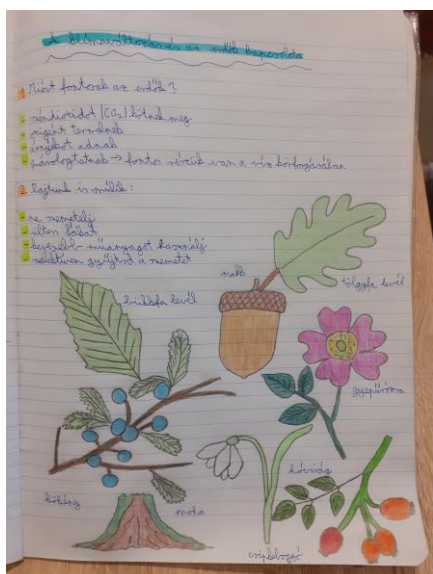 A klímaváltozás és az erdők kapcsolata
1 Miért fontosak az erdők?
- széndioxidot (CO₂) kötnek meg
- oxigént termelnek
- árnyékot adnak
- párologtatnak → fontos részük van a víz körforgásában
2. Rajtunk is múlik:
- ne szemetelj
- ültess fákat
- kevesebb műanyagot használj
- szelektíven gyűjtsd a szemetet
makk
tölgyfa levél
bükkfa levél
gyepűrózsa
kökény
moha
hóvirág
csipkebogyó